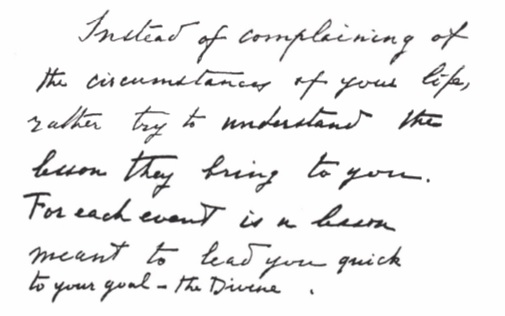 Instead of complaining of
the circumstances of your life,
rather try to understand the
lesson they bring to you.
For each event is a lesson
meant to lead you quick
to your goal - the Divine .